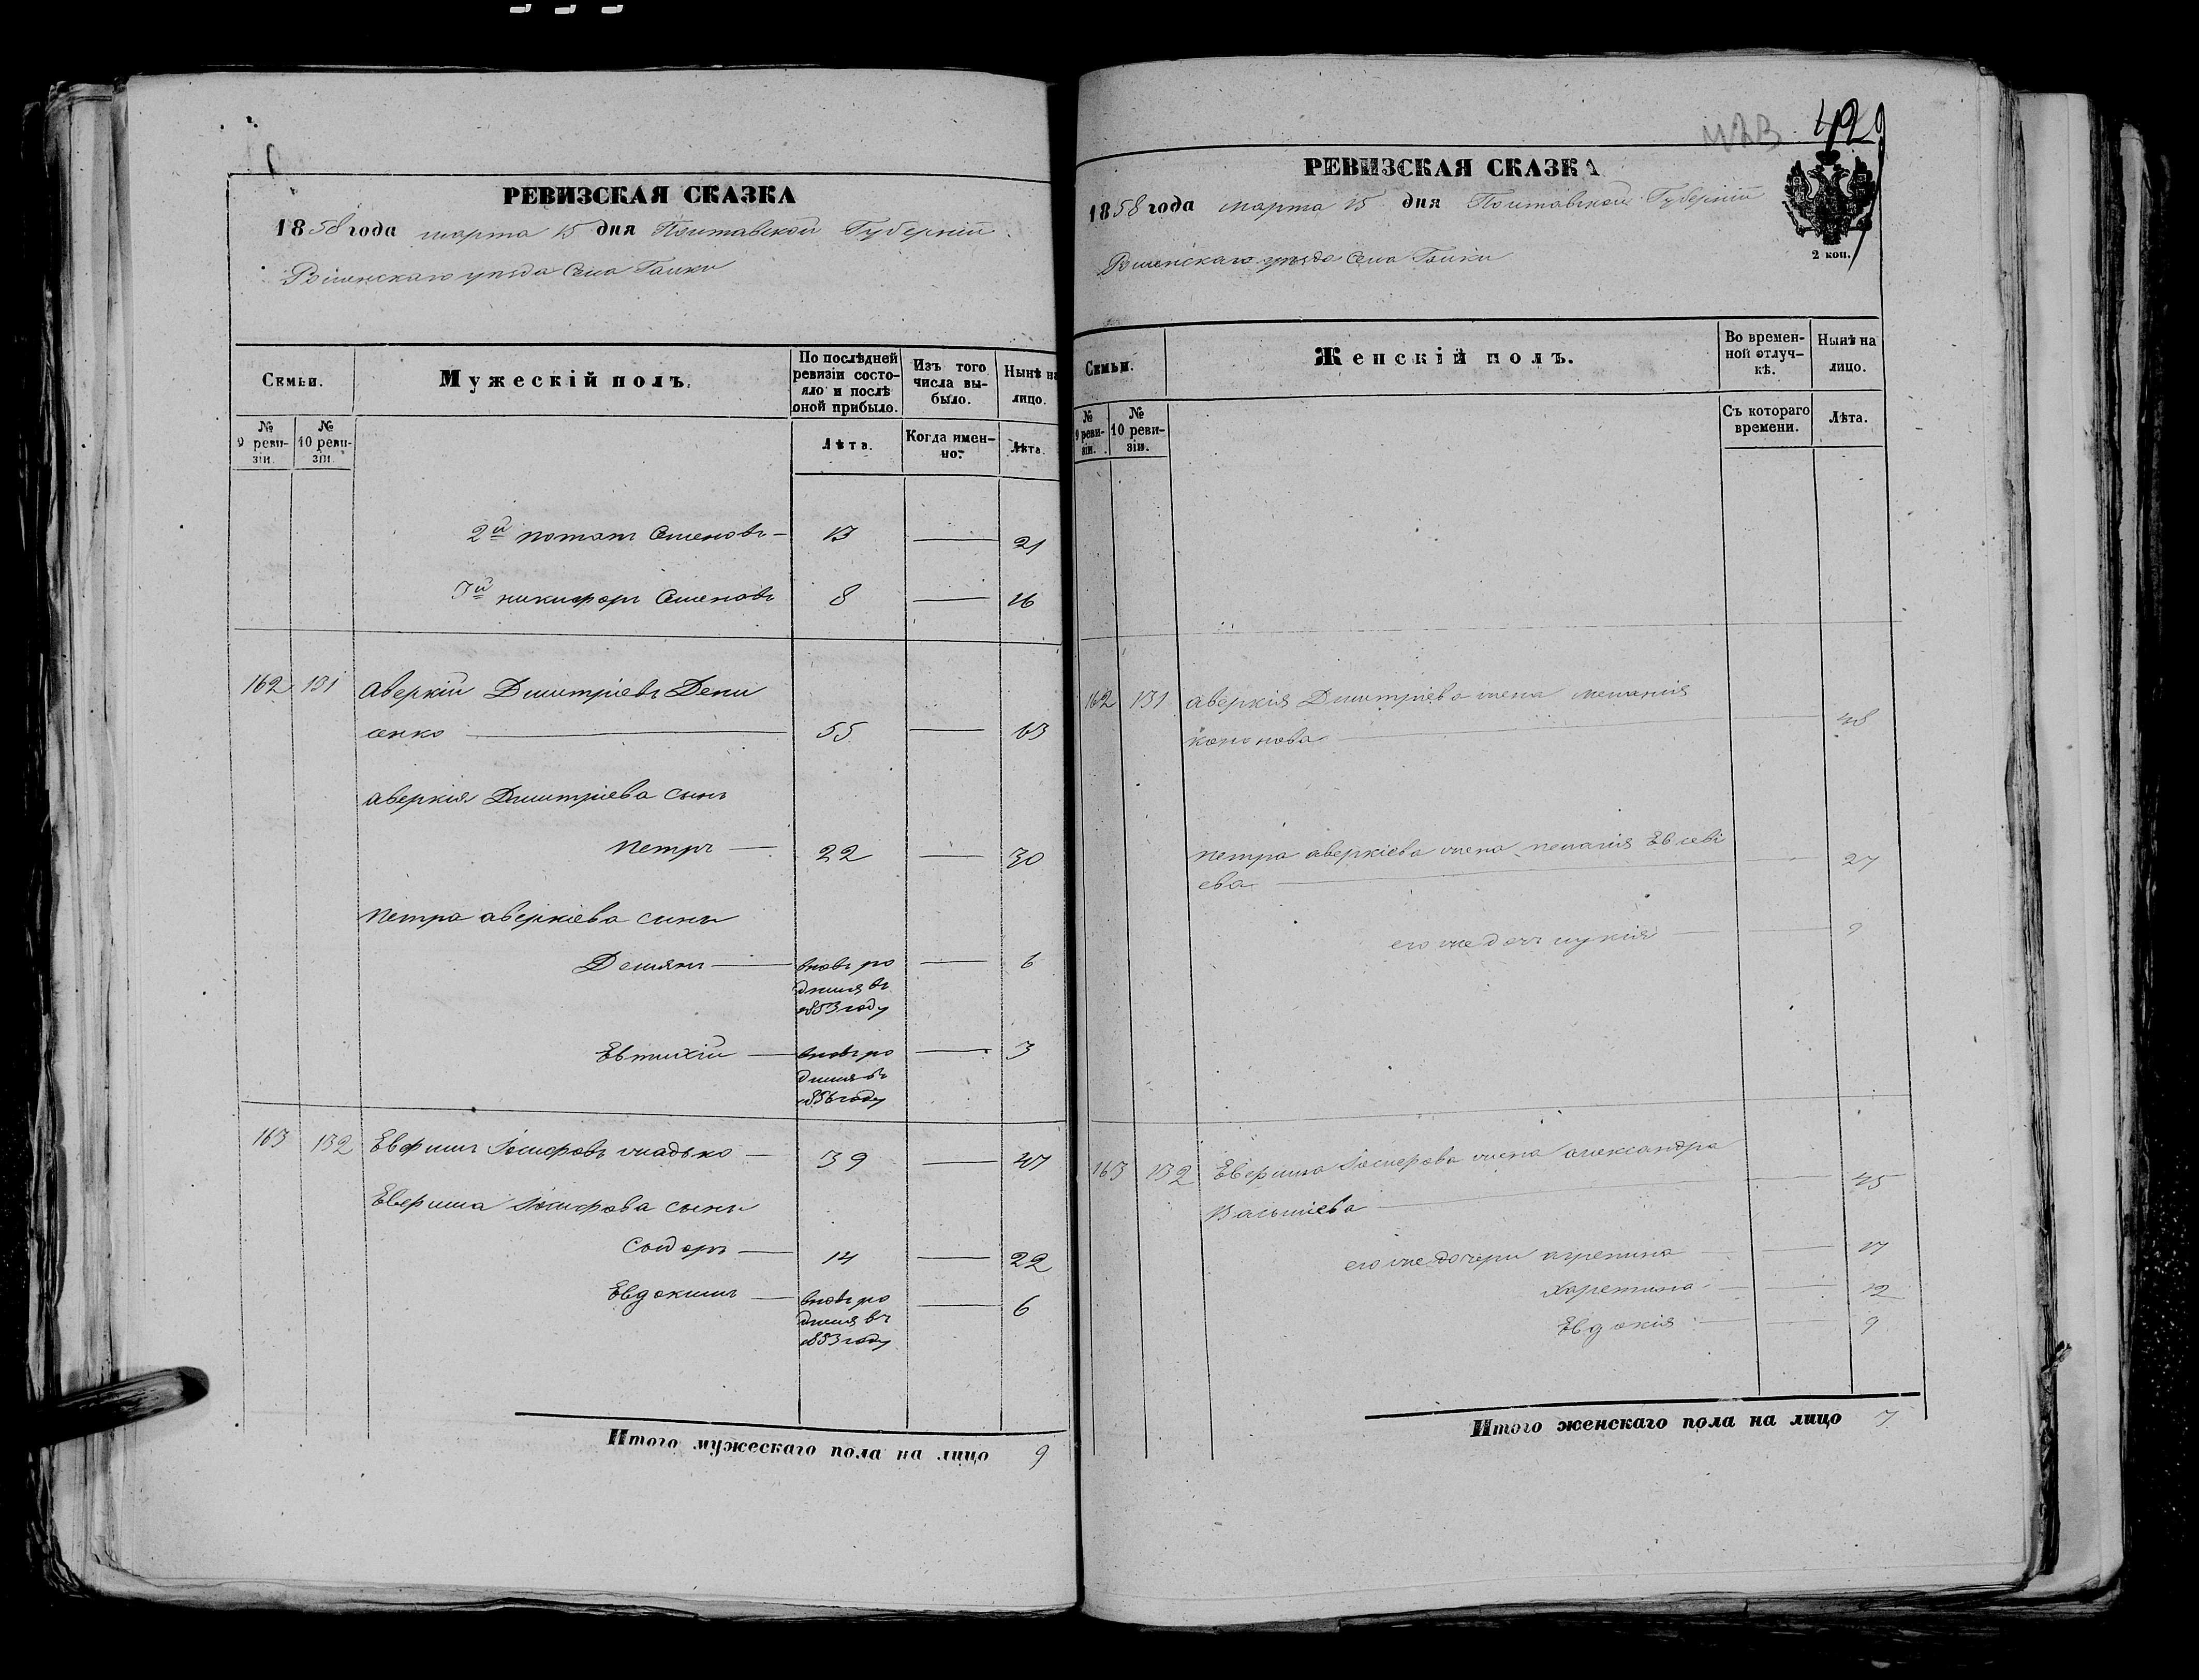 429
РЕВИЗСКАЯ СКАЗКА
1858 года марта 15 дня Полтавской Губерніи
Роменскаго уѣзда Села Галки
Семьи.
Мужескій полъ.
По послѣдней ревизіи состояло и послѣ оной прибыло.
Изъ того числа выбыло.
Нынѣ на лицо.
№ 9 ревизіи.
№ 10 ревизіи.
Лѣта.
Когда именно.
Лѣта.
2й потапъ Семеновъ — 13 — 21
3й никифоръ Семеновъ 8 — 16
162 131 аверкій Дмитріевъ Дени
сенко — 55 — 63
аверкія Дмитріева сынъ
петръ — 22 — 30
петра аверкіева сыны
Демянъ — вновь ро — 6
дился въ
1853 году
Евтихій — вновь ро — 3
дился въ
1856 году
163 132 Ефимъ Іосифовъ — 39 — 47
Ефима Іосифова сыны
Сидоръ — 14 — 22
Евдокимъ — вновь ро — 6
дился въ
1853 году
Итого мужескаго пола на лицо 9
РЕВИЗСКАЯ СКАЗКА
1858 года марта 15 дня Полтавской Губерніи
Роменскаго уѣзда Села Галки
2 коп.
Семьи.
Женскій полъ.
Во временной отлучкѣ.
Нынѣ на лицо.
№ 9 ревизіи.
№ 10 ревизіи.
Съ котораго времени.
Лѣта.
162 131 аверкія Дмитріева жена меланія
кононова — — 48
петра аверкіева жена пелагія Евсеві
ева — — 27
его же дочь лукія — — 9
163 132 Ефима Іосифова жена александра
Васильева — — 45
его же дочери агрепина — — 17
Харетина — — 12
Евдокія — — 9
Итого женскаго пола на лицо 7